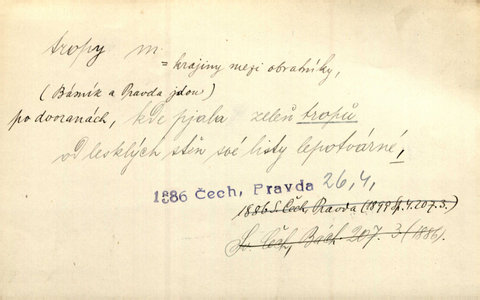 tropy m.
= krajiny mezi obratníky,
(Básník a Pravda jdou)
po dvoranách, kde pjala zeleň tropů
od lesklých stěn své listy lepotvárné,
1886 Čech, Pravda 26, 4,
1886 S. Čech, Pravda (1899 Sp. 4. 207. 3.)
Sv. Čech, Bás. 207. 3 (1886).